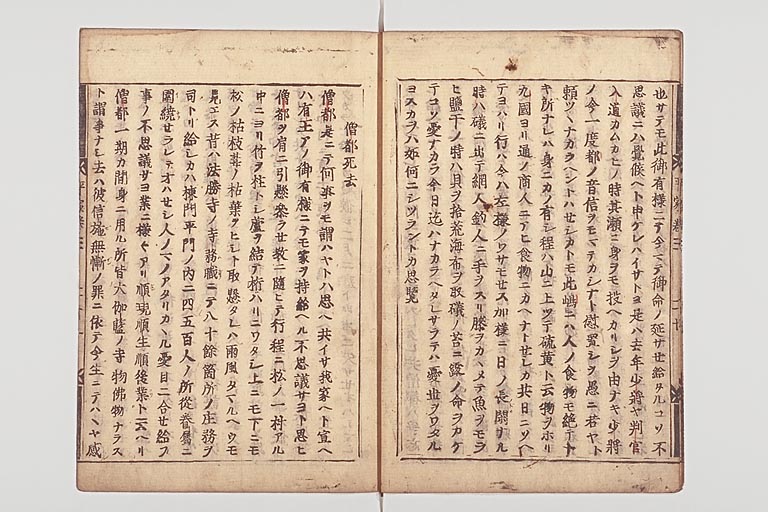 也サテモ此御有様ニテ今マテ御命ノ延サセ給タルコソ不
思議ニハ覺候ヘト申ケレハイサトヨ是ハ去年少將ヤ判官
入道カムカヒノ時其瀬ニ身ヲモ投ヘカリシヲ由ナキ少將
ノ今一度都ノ音信ヲモマテカシナト慰置シヲ愚ニ若ヤト
頼ツヽナカラヘントハセシカトモ此嶋ニハ人ノ食物モ絶テナ
キ所ナレハ身ニカノ有シ程ハ山ニ上ツテ硫黄ト云物ヲホリ
九國ヨリ通ノ商人ニアヒ食物ニカヘナトセシカ共日ニソヘ
テヨハリ行ハ今ハ左様ノワサモセス加様ニ日ノ長閑ナル
時ハ磯ニ出テ網人釣人ニ手ヲスリ膝ヲカヽメテ魚ヲモラ
ヒ鹽干ノ時ハ貝ヲ拾荒海布ヲ取磯ノ苔ニ露ノ命ヲカケ
テコソ憂ナカラ今日迄ハナカラヘタレサラテハ憂世ヲワタル
ヨスカヲハ如何ニシツラントカ思覧
僧都死去
僧都是ニテ何事ヲモ謂ハヤトハ思ヘ共イサ我家ヘト宣ヘ
ハ有王アノ御有様ニテモ家ヲ持給ヘル不思議サヨト思ヒ
僧都ヲ肩ニ引懸参ラセ教ニ随ヒテ行程ニ松ノ一村アル
中ニヨリ竹ヲ柱トシ蘆ヲ結テ桁ハリニワタシ上ニモ下ニモ
松ノ枯枝葦ノ枯葉ヲヒシト取懸タレハ雨風タマルヘウモ
見エス昔ハ法勝寺ノ寺務職ニテ八十餘箇所ノ庄務ヲ
司トリ給シカハ棟門平門ノ内ニ四五百人ノ所從眷属ニ
圍繞セラレテオハセシ人ノマノアタリカヽル憂目ニ合セ給フ
事ノ不思議サヨ業ニ様々アリ順現順生順後業ト云ヘリ
僧都一期カ間身ニ用ル所皆大伽藍ノ寺物佛物ナラス
ト謂事ナシ去ハ彼信施無慚ノ罪ニ依テ今生ニテハハヤ感